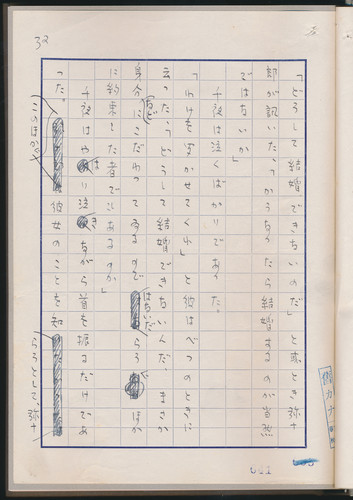 32
「どうして結婚できないのだ」と或とき弥十
郎が訊いた、「かうなつたら結婚するのが当然
ではないか」
千夜は泣くばかりであつた。
「わけを聞かせてくれ」と彼はべつのときに
云つた、「どうして結婚できないんだ、まさか
身分になどこだわつてゐるのではないだらう、ほか
に約束した者でもあるのか」
千夜はやはり泣きながら首を振るだけであ
つた。
このほか
彼女のことを知
らうとして、弥十